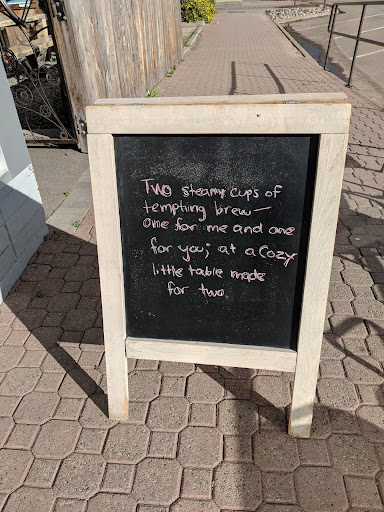 Two steamy cups of
tempting brew—
one for me and one
for you; at a cozy
little table made
for two